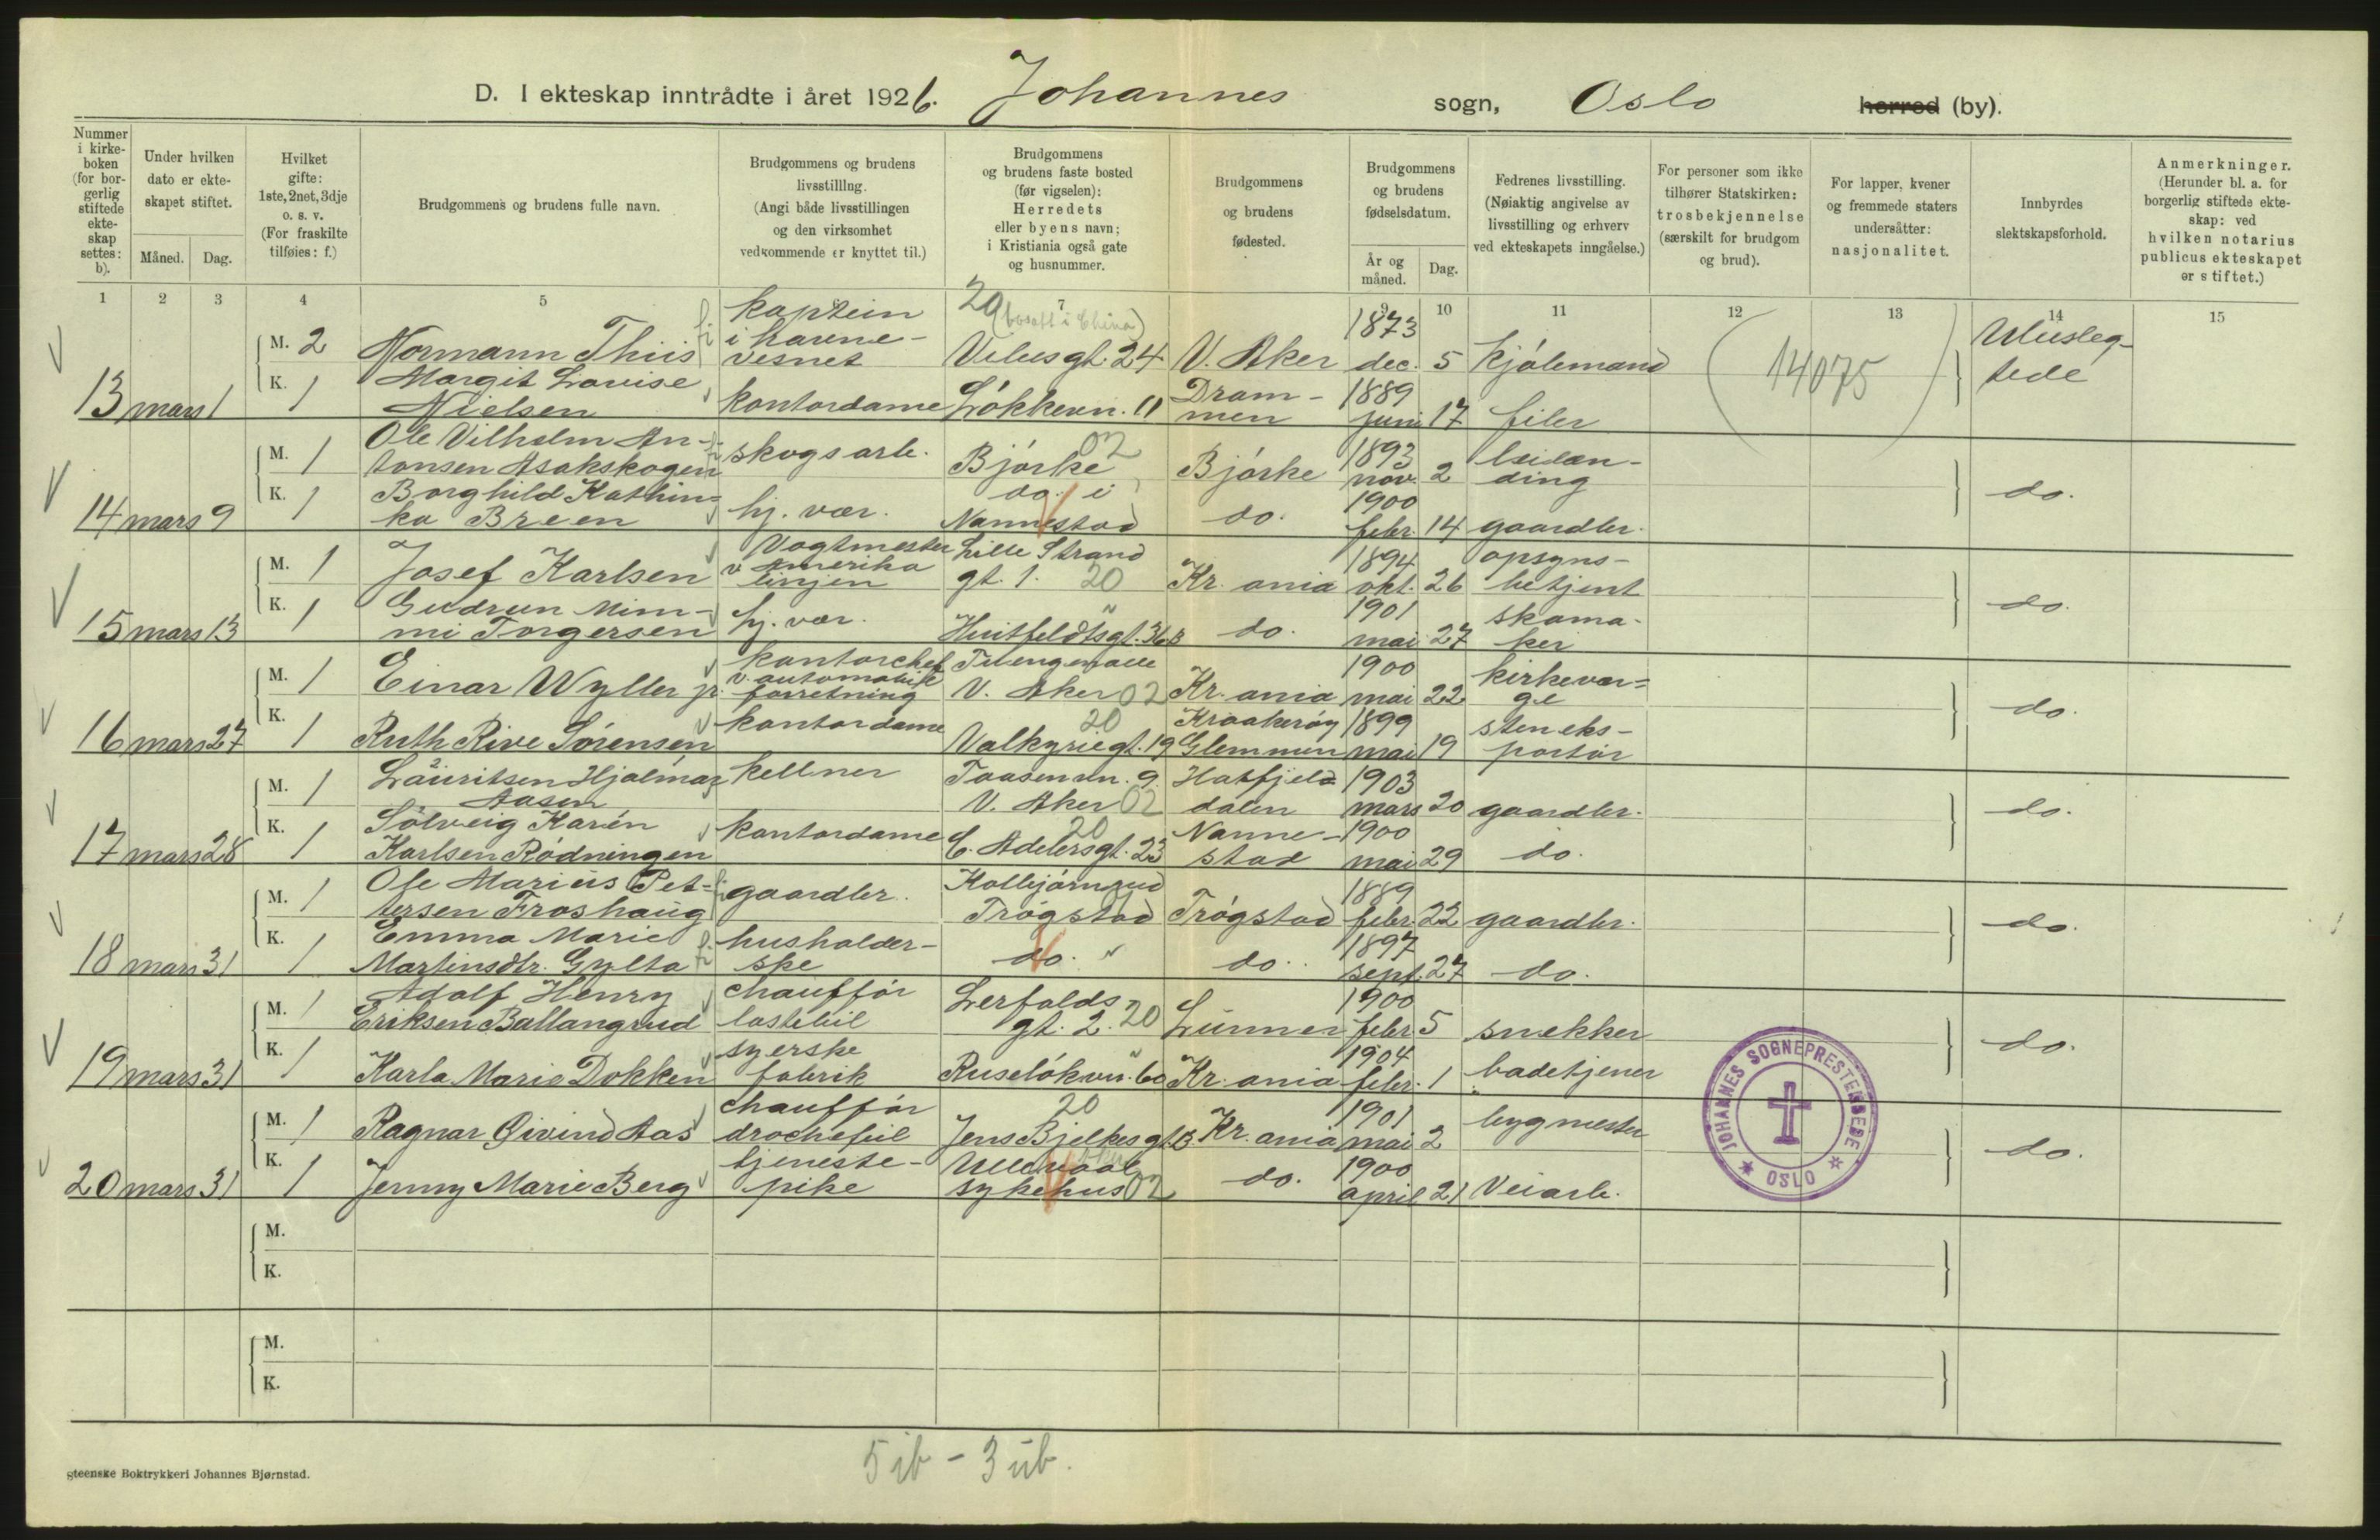 D. I ekteskap inntrådte i året 1926. Johannes sogn, Oslo herred (by).
Nummer i kirkeboken (for borgerlig stiftede ekteskap settes: b).
Under hvilken dato er ekteskapet stiftet.
Måned. Dag.
Hvilket gifte: 1ste, 2net, 3dje o. s. v. (For fraskilte tilføies: f.)
Brudgommens og brudens fulle navn.
Brudgommens og brudens livsstilllng. (Angi både livsstillingen og den virksomhet vedkommende er knyttet til.)
Brudgommens og brudens faste bosted (før vigselen): Herredets eller byens navn; i Kristiania også gate og husnummer.
Brudgommens og brudens fødested.
Brudgommens og brudens fødselsdatum.
År og måned. Dag.
Fedrenes livsstilling. (Nøiaktig angivelse av livsstilling og erhverv ved ekteskapets inngåelse.)
For personer som ikke tilhører Statskirken: trosbekjennelse (særskilt for brudgom og brud).
For lapper, kvener og fremmede staters undersåtter: nasjonalitet.
Innbyrdes slektskapsforhold.
Anmerkninger. (Herunder bl. a. for borgerlig stiftede ekteskap: ved hvilken notarius publicus ekteskapet er stiftet.)
1 2 3 4 5 7 9 10 11 12 13 14 15
M. 2 Normann Thiis kaptein i havnevesnet 20 (bosatt i China) Vibesgt. 24 V. Aker 1873 dec. 5 kjølemand (14075) Ubesleg-
13 mars 1 K. 1 Margit Lovise Nielsen kontordame Løkkevn. 11 Drammen 1889 juni 17 filer tede
M. 1 Ole Vilhelm Antonsen Asakskogen skogsarb. Bjørke 02 Bjørke 1893 nov. 2 leilending
14 mars 9 K. 1 Borghild Kathinka Breen hj. vær. do. i Nannestad do. 1900 febr. 14 gaardbr. do.
M. 1 Josef Karlsen Vagtmester v Amerika linjen Lille Strandgt. 1. 20 Kr.ania 1894 okt. 26 opsynsbetjent
15 mars 13 K. 1 Gudrun Mimmi Torgersen hj. vær. Huitfeldtsgt. 36B do. 1901 mai 27 skomaker do.
M. 1 Einar Wyller jr. kontorchef v. automobilforretning V. Aker 02 Kr.ania 1900 mai 22 kirkeverge
16 mars 27 K. 1 Ruth Rive Sørensen kontordame 20 Valkyriegt. 19 Kraakerøy Glemmen 1899 mai 19 steneksportør do.
M. 1 Lauritsen Hjalmar Aasen kellner Taasenvn. 9. V. Aker 02 Hatfjelddalen 1903 mars 20 gaardbr.
17 mars 28 K. 1 Sølveig Karén Karlsen Rødningen kontordame 20 C. Adelersgt. 23 Nannestad 1900 mai 29 do. do.
M. 1 Ole Marius Pettersen Froshaug gaardbr. Kolbjørnsrud Trøgstad Trøgstad 1889 febr. 22 gaardbr.
18 mars 31 K. 1 Emma Marie Martinsdtr. Gylta husholderske do. do. 1897 sept. 27 do. do.
M. 1 Adolf Henry Eriksen Ballangrud chauffør lastebil Lerfaldsgt. 2. 20 Lunner 1900 febr 5 snekker
19 mars 31 K. 1 Karla Marie Dokken syerske fabrik Ruseløkvn. 60 Kr.ania 1904 febr. 1 badetjener do.
M. 1 Ragnar Øivind Aas chauffør droschebil 20 Jens Bjelkesgt. Kr.ania 1901 mai 2 bygmester
20 mars 31 K. 1 Jenny Marie Berg tjenestepike Ullevaal sykehus 02 do. 1900 april 21 Veiarb. do.
M.
K.
M.
K.
JOHANNES SOGNEPRESTEMBEDE
OSLO
5 ib - 3 ub.
steenske Boktrykkeri Johannes Bjørnstad.